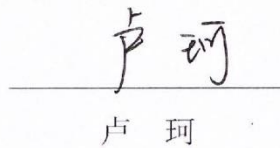 卢珂
卢 珂